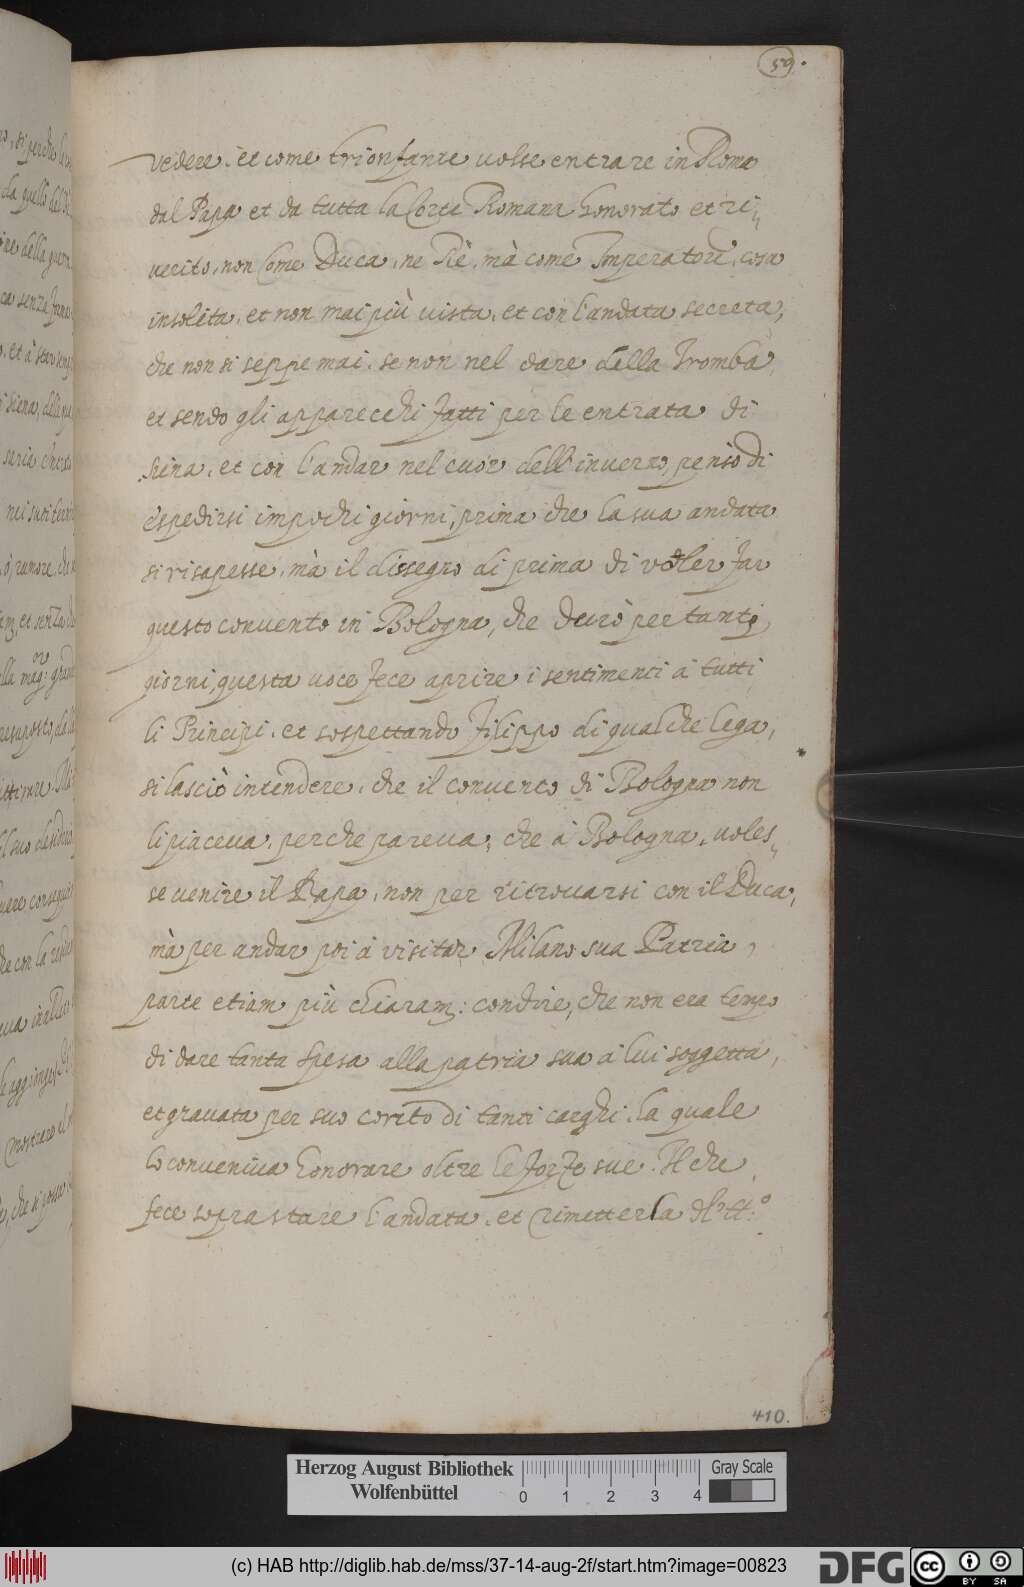 59.
vedere, et come trionfante uolse entrare in Roma
dal Papa et da tutta la Corte Romana honorato et ri„
uerito, non Come Duca, ne Rè, mà come Imperatore, cosa
insolita, et non mai più uista, et con l'andata secreta,
che non si seppe mai, se non nel dare della Tromba,
et sendo gli apparecchi fatti per le entrata di
Siena, et con l'andar nel cuor dell'inuerno, pensò di
espedirsi impochi giorni, prima che la sua andata
si risapesse, mà il dissegno di prima di voler far
questo conuento in Bologna, che durò per tanti
giorni, questa uoce fece aprire i sentimenti à tutti
li Principi, et sospettando Filippo di qualche lega,
si lasciò intendere, che il conuento di Bologna non
li piaceua, perche pareua, che à Bologna, uoles„
se uenire il Papa, non per ritrouarsi con il Duca,
mà per andar poi à visitar Milano sua Patria,
parte etiam più chiaram: con dire, che non era tempo
di dare tanta spesa alla patria sua à lui soggetta,
et grauata per suo conto di tanti carghi, la quale
lo conueniua honorare oltre le forze sue. Il che
fece soprastare l'andata, et rimetterla
410.
Herzog August Bibliothek
Wolfenbüttel
0 1 2 3 4
Gray Scale
(c) HAB http://diglib.hab.de/mss/37-14-aug-2f/start.htm?image=00823
DFG
cc BY SA